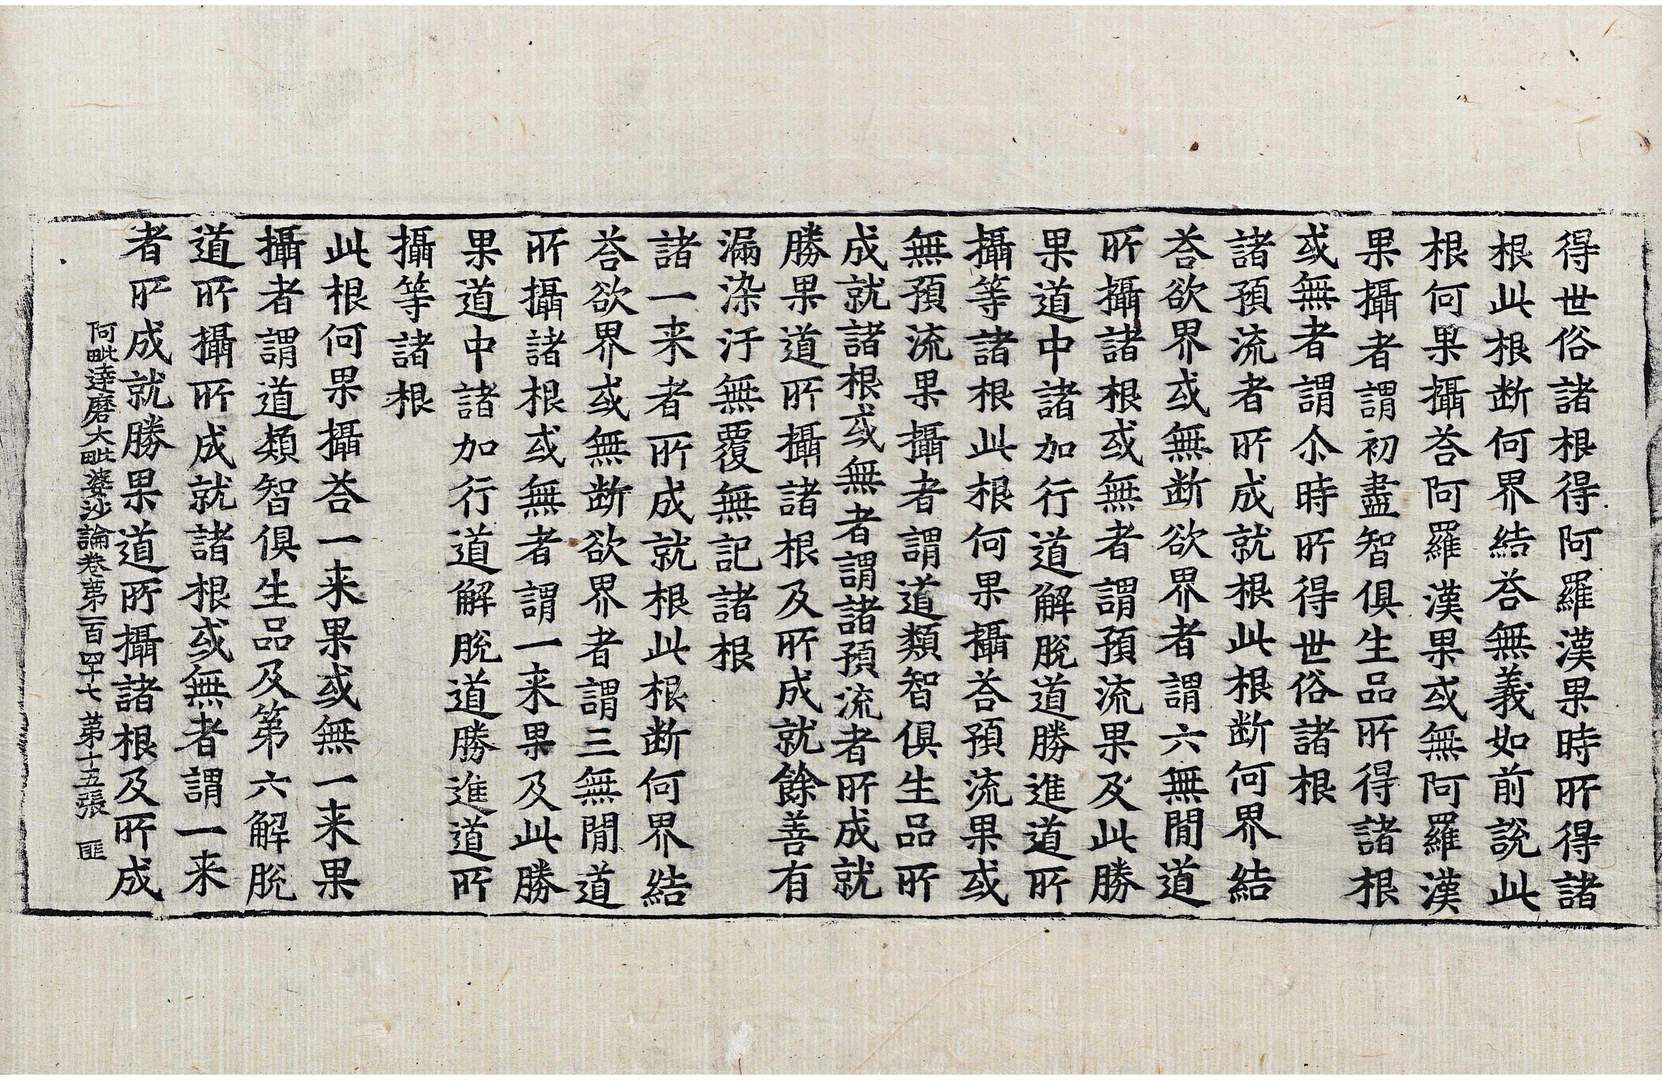 得世俗諸根得阿羅漢果時所得諸
根此根断何界結荅無義如前說此
根何果攝荅阿羅漢果或無阿羅漢
果攝者謂初盡智俱生品所得諸根
或無者謂尒時所得世俗諸根
諸預流者所成就根此根断何界結
荅欲界或無断欲界者謂六無閒道
所攝諸根或無者謂預流果及此勝
果道中諸加行道解脫道勝進道所
攝等諸根此根何果攝荅預流果或
無預流果攝者謂道類智俱生品所
成就諸根或無者謂諸預流者所成就
勝果道所攝諸根及所成就餘善有
漏染汙無覆無記諸根
諸一来者所成就根此根断何界結
荅欲界或無断欲界者謂三無閒道
所攝諸根或無者謂一来果及此勝
果道中諸加行道解脫道勝進道所
攝等諸根
此根何果攝荅一来果或無一来果
攝者謂道類智俱生品及第六解脫
道所攝所成就諸根或無者謂一来
者所成就勝果道所攝諸根及所成
阿毗達磨大毗婆沙論卷第一百四十七 第十五張 匪